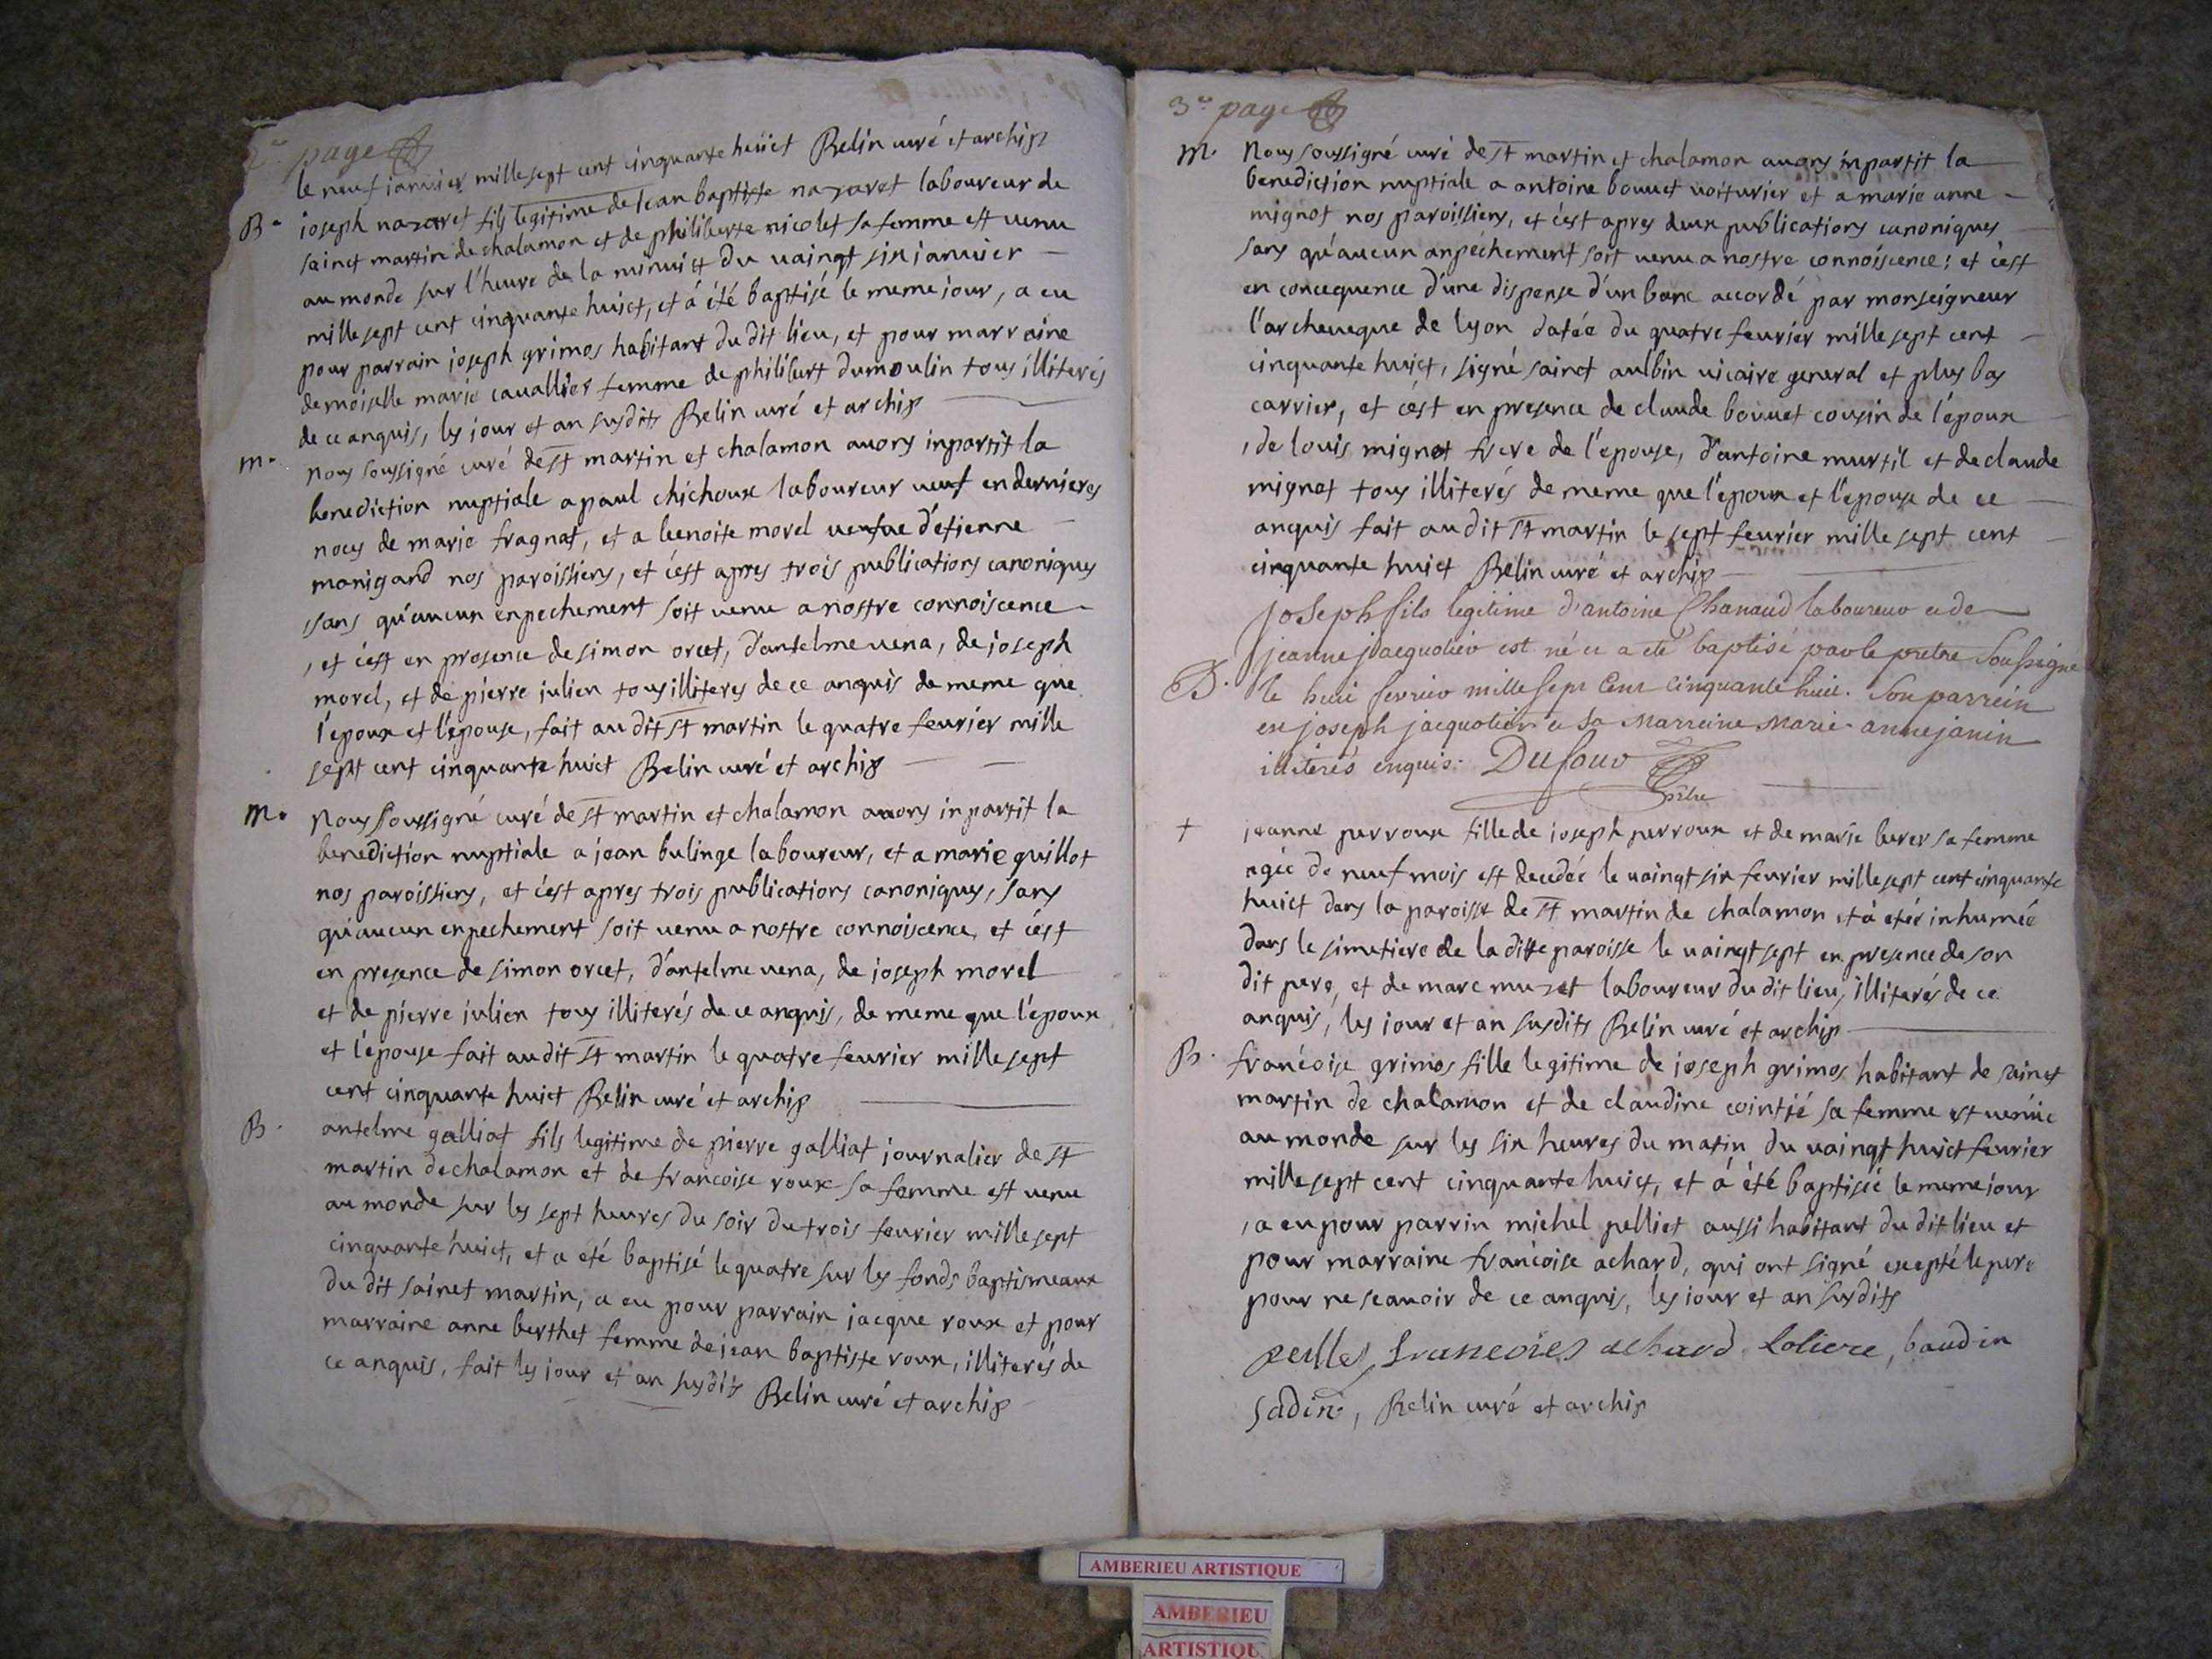 2e page
le neuf janvier mille sept cent cinquante huict Belin curé et archip
B. joseph nazaret fils legitime de Jean baptiste nazaret laboureur de
sainct martin de chalamon et de philiberte nicolet sa femme est venu
au monde sur l'heure de la minuict du vaingt six janvier
mille sept cent cinquante huict, et á été baptisé le meme jour, a eu
pour parrain joseph grimos habitant du dit lieu, et pour marraine
demoiselle marie cavallier femme de philibert dumoulin tous illiterés
de ce anquis, les jour et an susdits Belin curé et archip
m. nous soussigné curé de st martin et chalamon avons inpartit la
benediction nuptiale a paul chichoux laboureur veuf en dernieres
noces de marie fragnat, et a benoite morel veufve d'etienne
manigand nos paroissiens, et c'est apres trois publications canoniques
sans qu'aucun enpechement soit venu a nostre connoiscence
, et c'est en presence de simon orcet, d'antelme vena, de joseph
morel, et de pierre julien tous illiteres de ce anquis de meme que
l'epoux et l'epouse, fait au dit st martin le quatre fevrier mille
sept cent cinquante huict Belin curé et archip
m. nous soussigné curé de st martin et chalamon avons inpartit la
benediction nuptiale a jean bulinge laboureur, et a marie guillot
nos paroissiens, et c'est apres trois publications canoniques, sans
qu'aucun enpechement soit venu a nostre connoiscence, et c'est
en presence de simon orcet, d'antelme vena, de joseph morel
et de pierre julien tous illiterés de ce anquis, de meme que l'époux
et l'épouse fait au dit st martin le quatre fevrier mille sept
cent cinquante huict Belin curé et archip
B. antelme galliat fils legitime de pierre galliat journalier de st
martin de chalamon et de francoise roux sa femme est venu
au monde sur les sept heures du soir du trois fevrier mille sept
cinquante huict, et a eté baptisé le quatre sur les fonds baptismeaux
du dit sainct martin, a eu pour parrain jacque roux et pour
marraine anne berthet femme de jean baptiste roux, illiterés de
ce anquis, fait les jour et an susdits Belin curé et archip
3e page
m. Nous soussigné curé de st martin et chalamon avons inpartit la
benediction nuptiale a antoine bouvet voiturier et a marie anne
mignot nos paroissiens, et c'est apres deux publications canoniques
sans qu'aucun anpéchement soit venu a nostre connóiscence; et c'est
en concequence d'une dispense d'un banc accordé par monseigneur
l'archeveque de lyon datée du quatre fevrier mille sept cent
cinquante huict, signé sainct aulbin vicaire general et plus bas
carrier, et c'est en presence de claude bouvet cousin de l'époux
, de louis mignot frere de l'epouse, d'antoine murtil et de claude
mignot tous illiterés de meme que l'epoux et l'epouse de ce
anquis fait au dit st martin le sept fevrier mille sept cent
cinquante huict Belin curé et archip
joseph fils legitime d'antoine Chanaud laboureur et de
jeanne jacquotier est né et a eté baptisé par le pretre soussigné
B. le huit fevrier mille sept cent cinquante huit. Son parrein
est joseph jacquotier et sa marreine marie anne janin
illiterés enquis. Dufour
pretre
† jeanne perroux fille de joseph perroux et de marie berer sa femme
agée de neuf mois est decedée le vaingt six fevrier mille sept cent cinquante
huict dans la paroisse de st martin de chalamon et á eteé inhumée
dans le simetiere de la ditte paroisse le vaingt sept en presence de son
dit pere, et de marc muzet laboureur du dit lieu, illiterés de ce
anquis, les jour et an susdits Belin curé et archip
B. francoise grimos fille legitime de joseph grimos habitant de sainct
martin de chalamon et de claudine cointié sa femme est venüe
au monde sur les six heures du matin du vaingt huict fevrier
mille sept cent cinquante huict, et á été baptisée le meme jour
, a eu pour parrin michel pelliet aussi habitant du dit lieu et
pour marraine francoise achard, qui ont signé excepté le pere
pour ne scavoir de ce anquis, les jour et an susdits
francoies achard loliere, baudin
sadin, Belin curé et archip
AMBERIEU ARTISTIQUE
AMBERIEU
ARTISTIQU